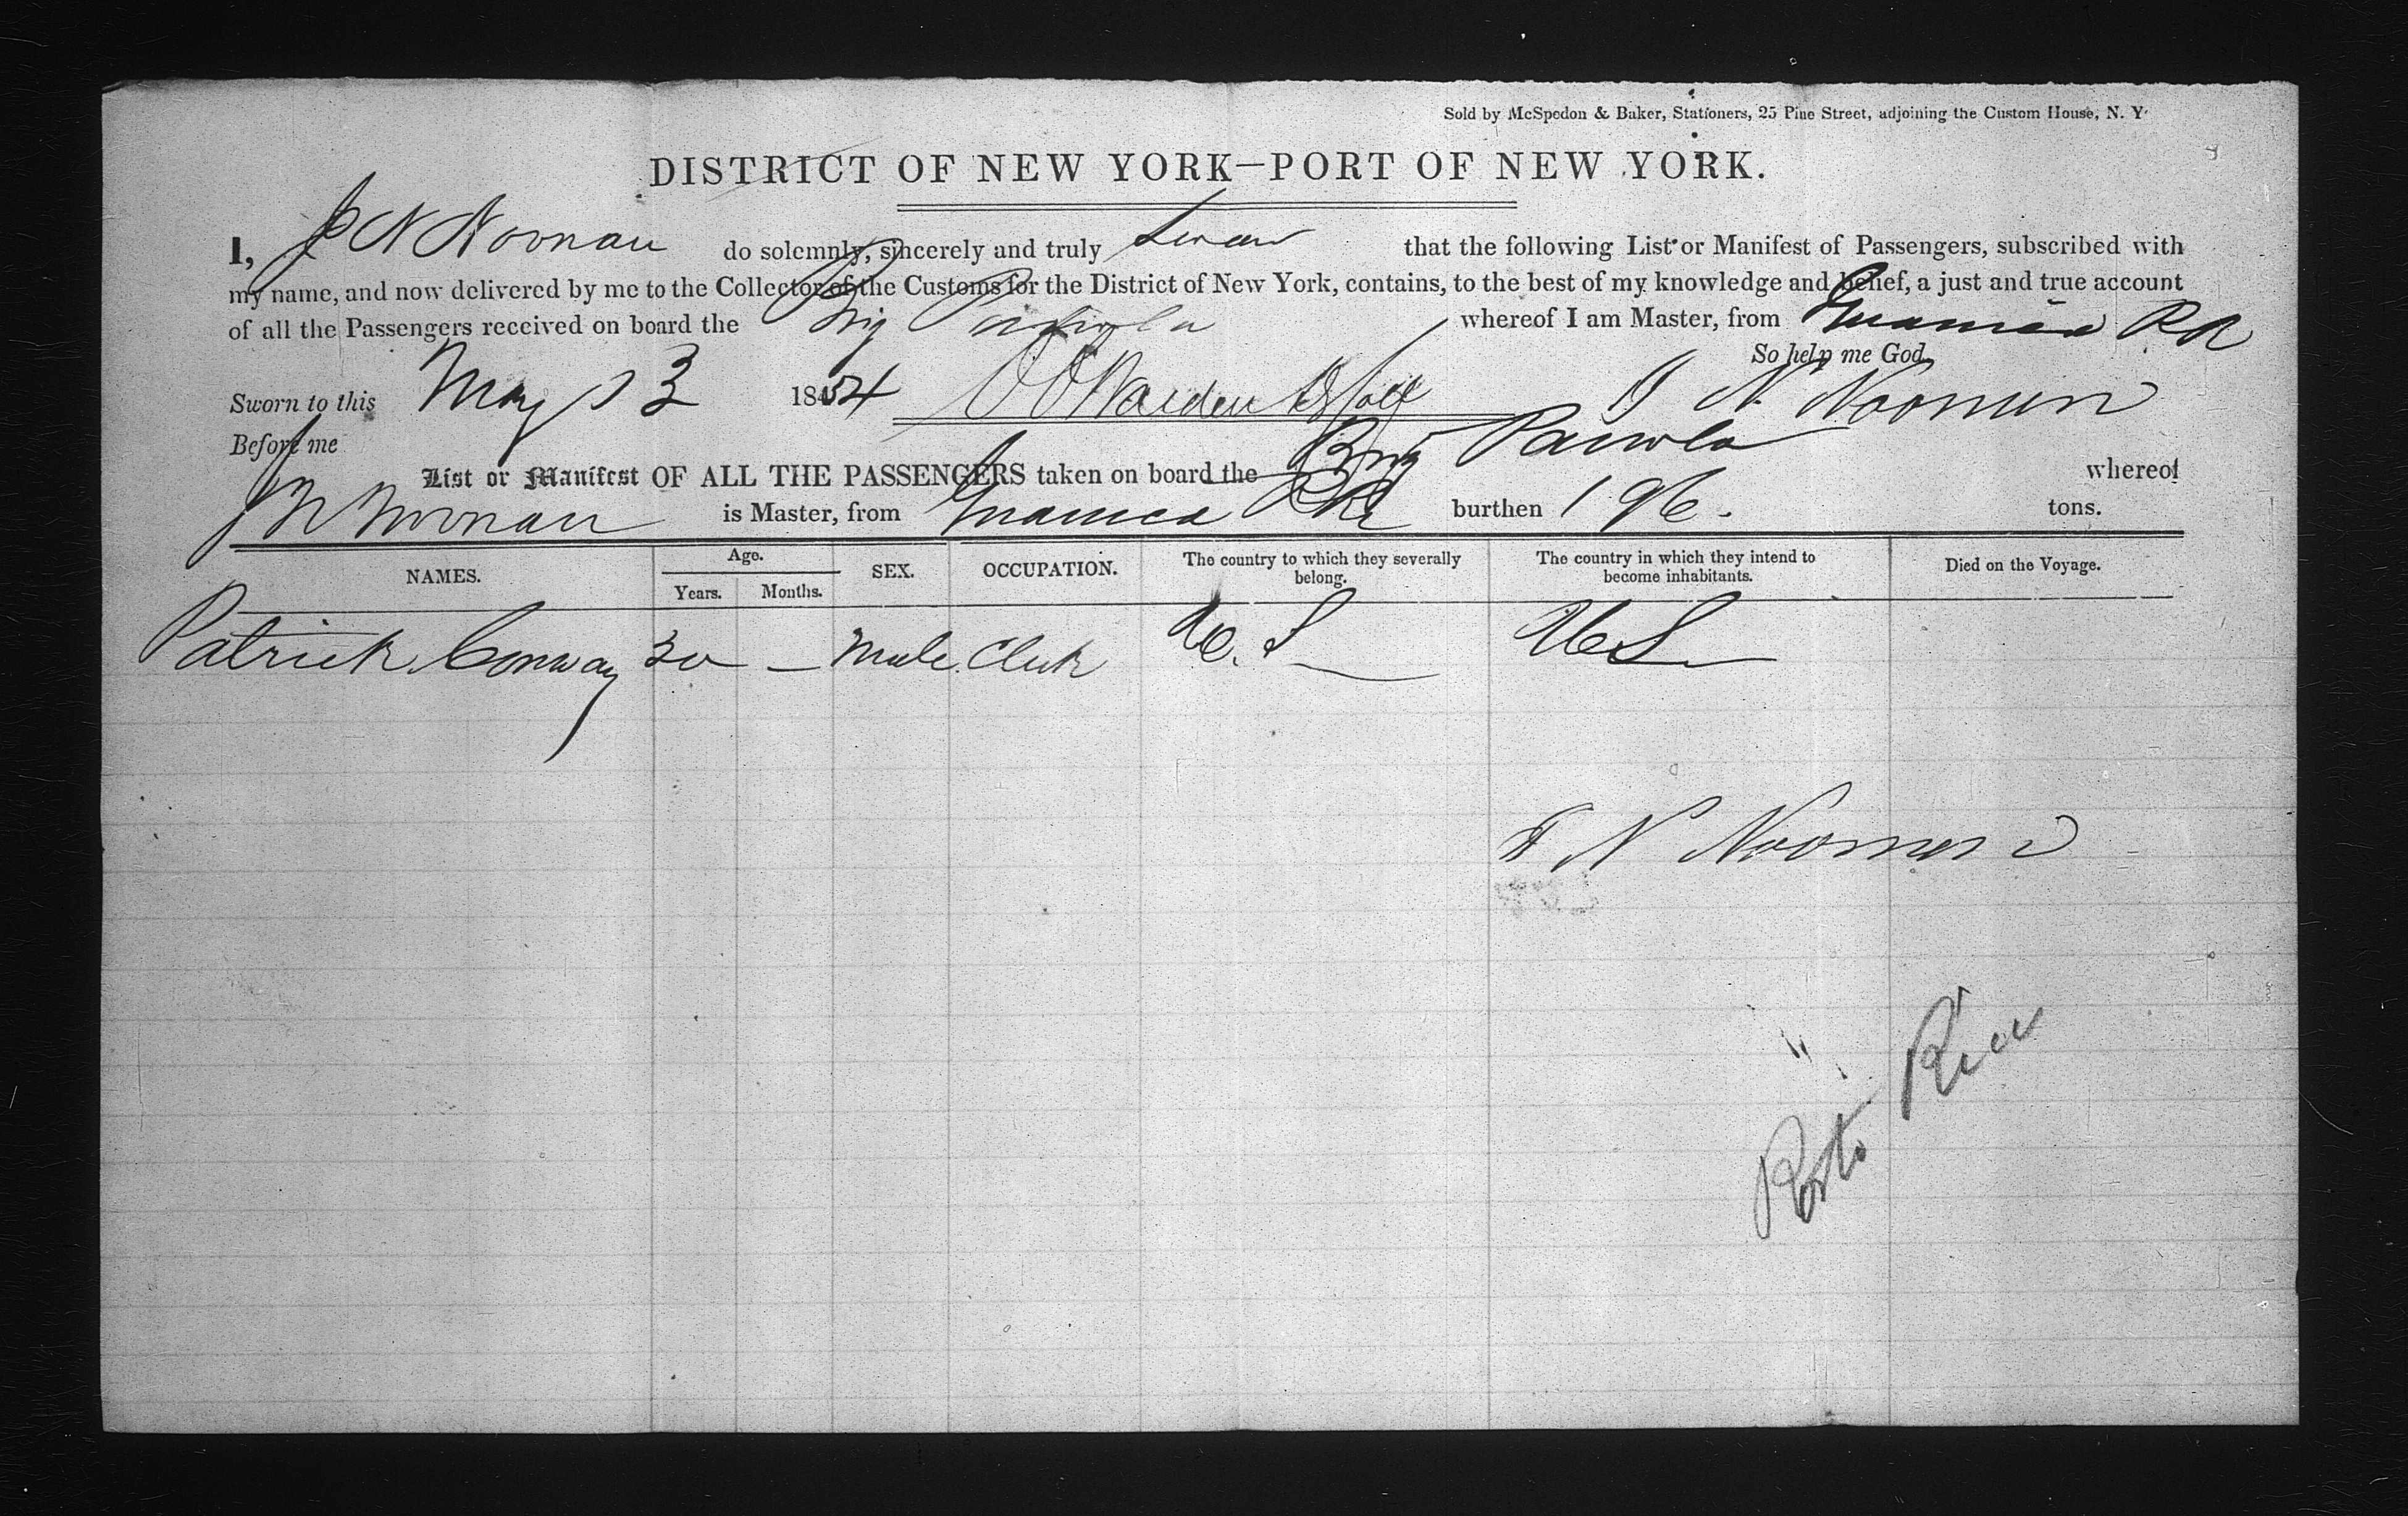 Sold by McSpedon & Baker, Stationers, 25 Pine Street, adjoining the Custom House, N. Y.
DISTRICT OF NEW YORK—PORT OF NEW YORK.
I, J N Noonan do solemnly, sincerely and truly swear that the following List or Manifest of Passengers, subscribed with
my name, and now delivered by me to the Collector of the Customs for the District of New York, contains, to the best of my knowledge and belief, a just and true account
of all the Passengers received on board the Brig whereof I am Master, from Guanica P R
So help me God.
Sworn to this May 13 1854 J N Noonan
Before me
List or Manifest OF ALL THE PASSENGERS taken on board the Brig whereof
J N Noonan is Master, from Guanica P R burthen 196. tons.
NAMES. Age. Years. Months. SEX. OCCUPATION. The country to which they severally belong. The country in which they intend to become inhabitants. Died on the Voyage.
Patrick Conway 30 — Male Clerk U. S U S
J N Noonan
Porto Rico